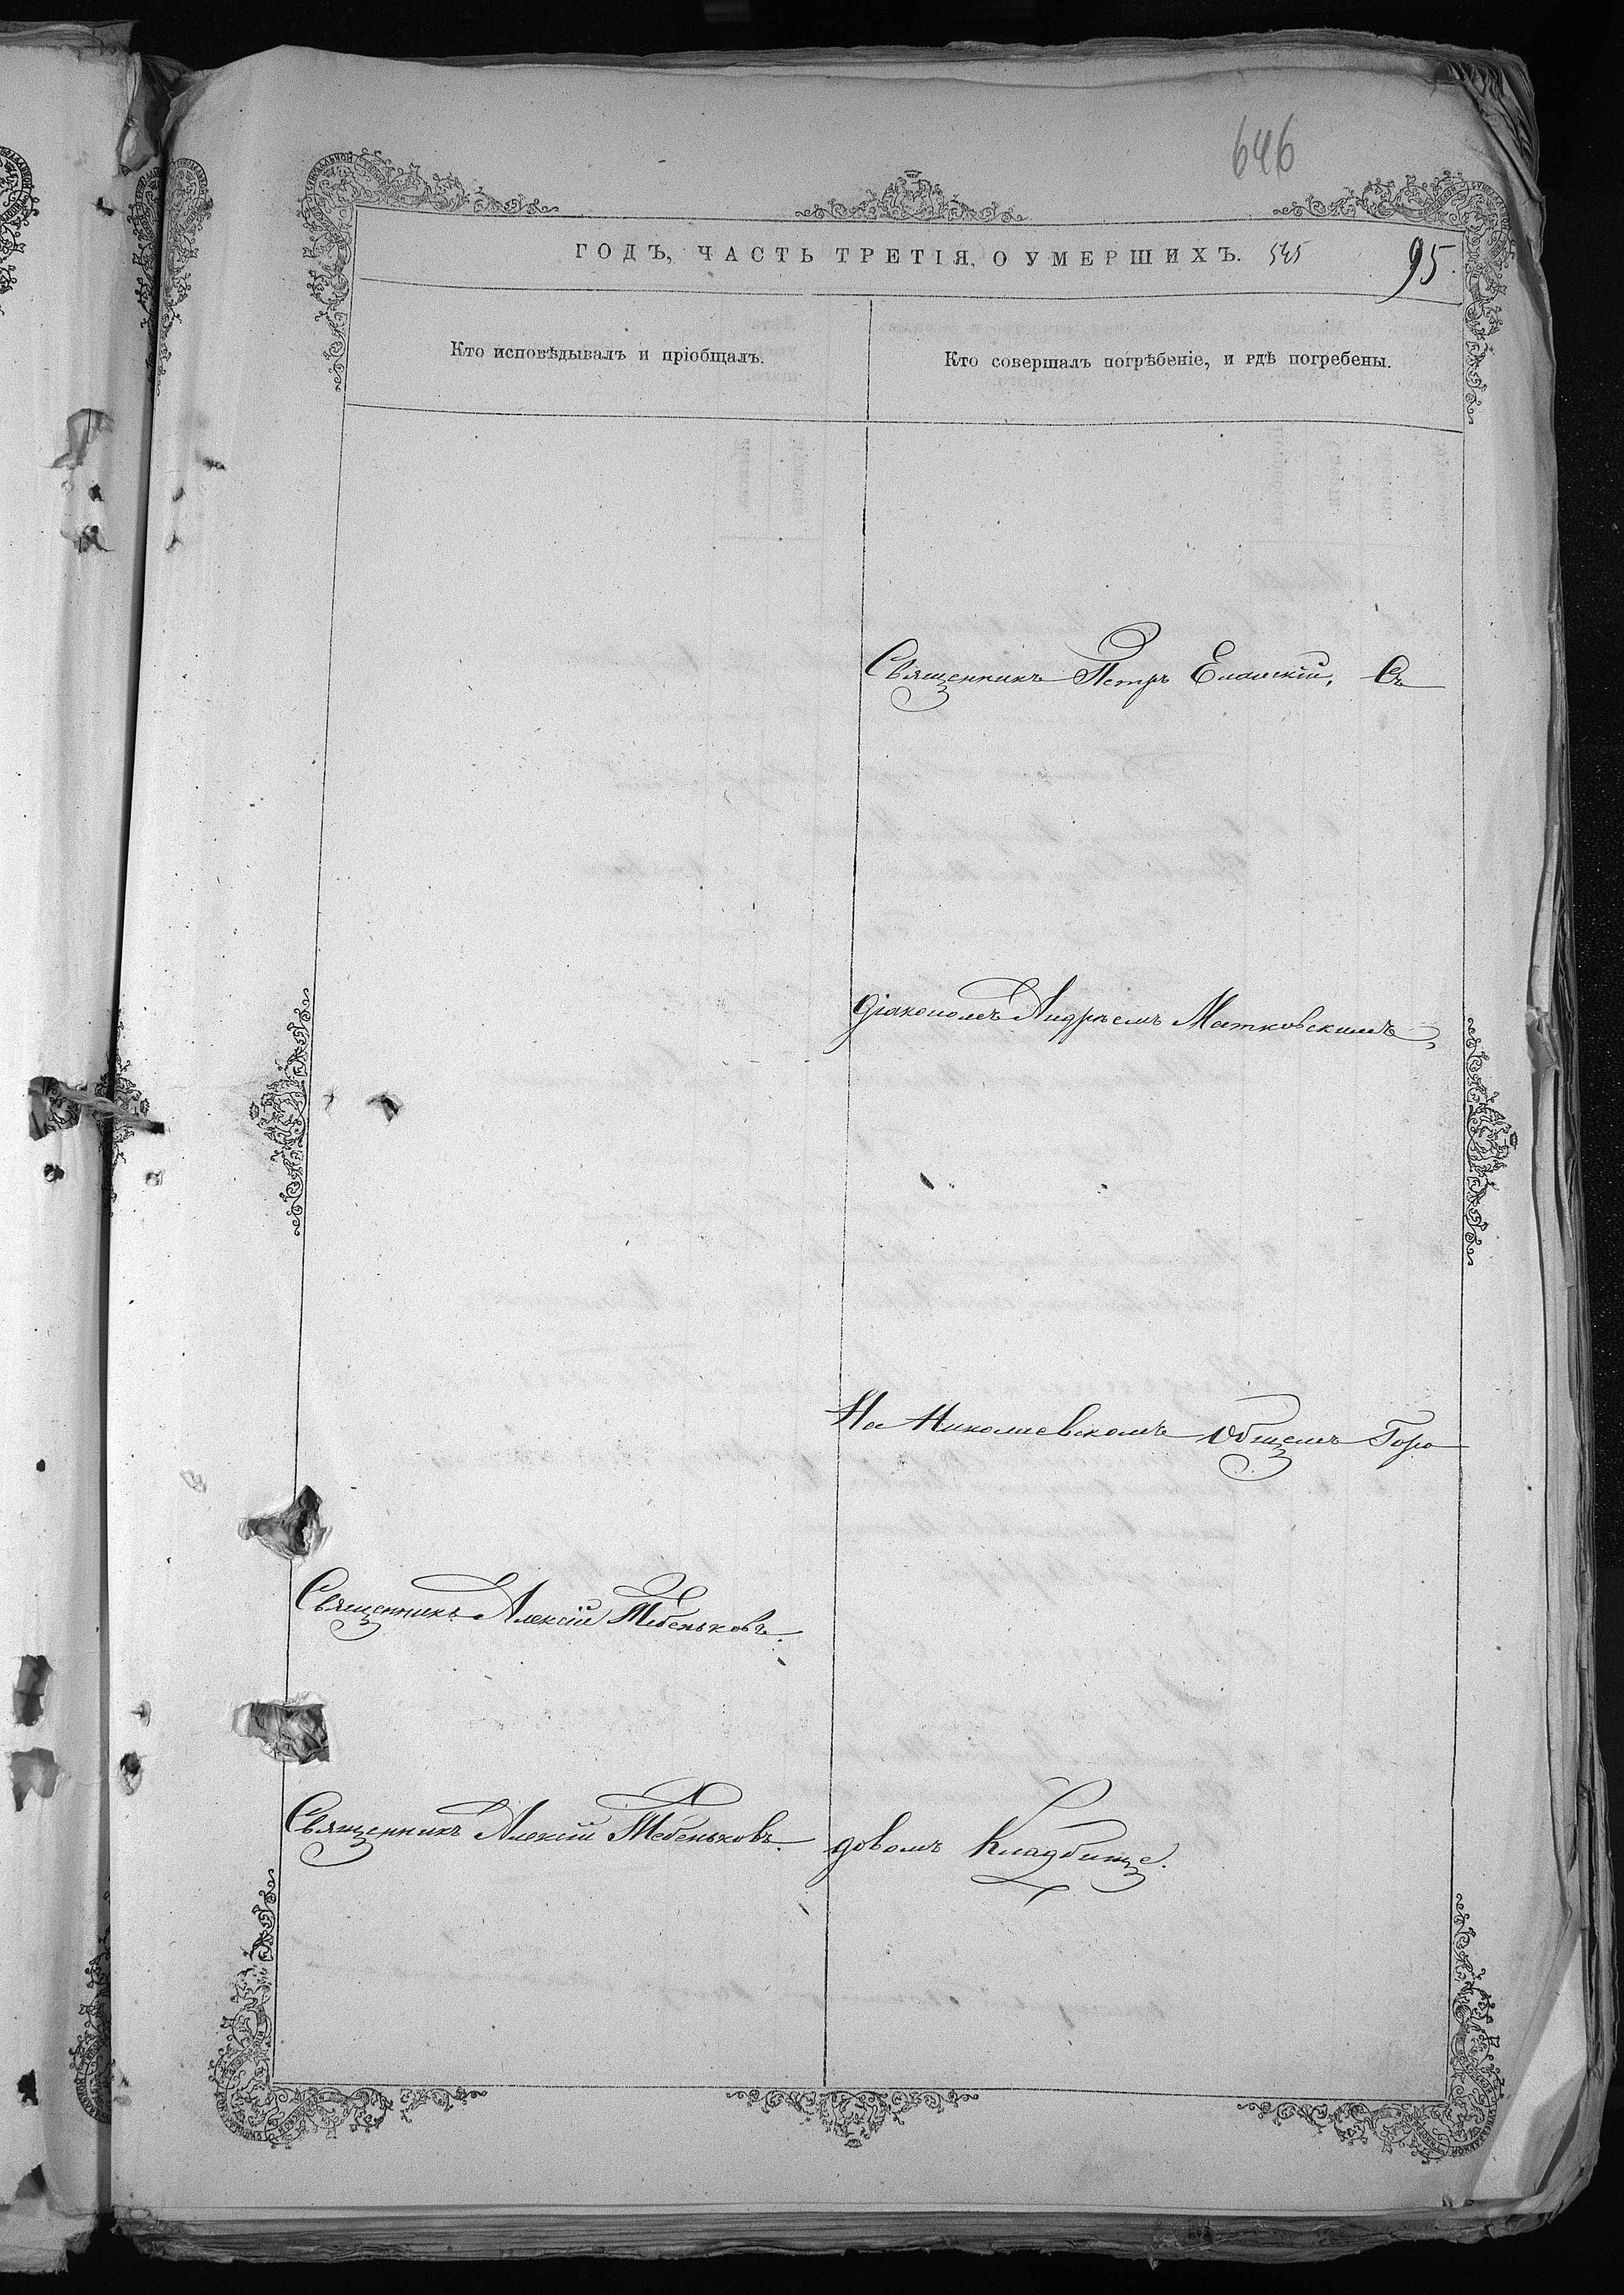 646
ГОДЪ, ЧАСТЬ ТРЕТІЯ, О УМЕРШИХЪ. 545 95.
Кто исповѣдывалъ и пріобщалъ.
Кто совершалъ погрѣбеніе, и гдѣ погребены.
Священникъ Петръ Еланскій, Съ
діакономъ Андреемъ Матковскимъ,
На Николаевскомъ Общемъ Горо
Священникъ Алексій Тебеньковъ.
Священникъ Алексій Тебеньковъ.
довомъ Кладбищѣ.